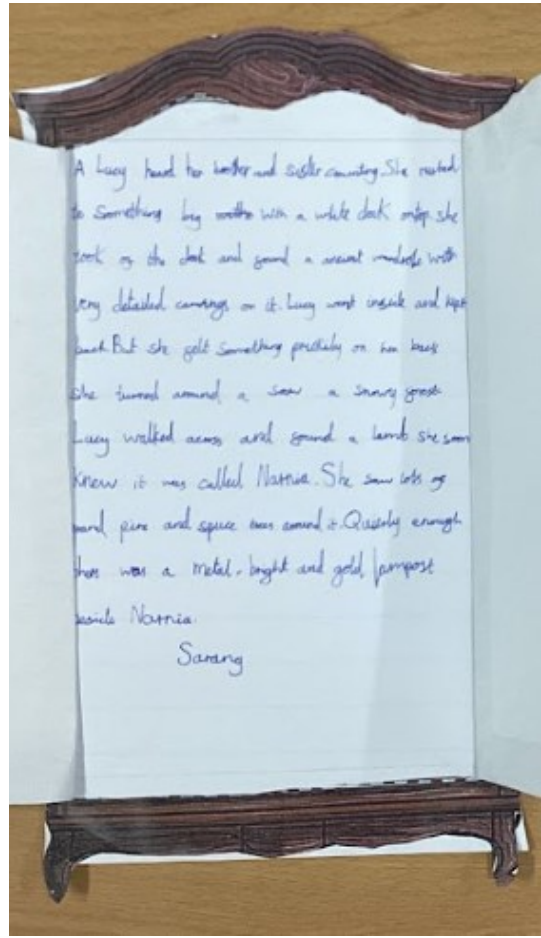 A Lucy heard her brother and sister counting. She rested
to something big with a white cloak ontop she
took of the and found a wardrobe with
very detailed carvings on it. Lucy went inside and kept
back. But she felt something prickely on her back
she turned around a saw a snowy forest
Lucy walked across and found a lamb she soon
Knew it was called Narnia. She saw lots of
pine and spuce trees around it. Quierly enough
there was a metal, bright and gold lampost
beside Narnia.
Sarang